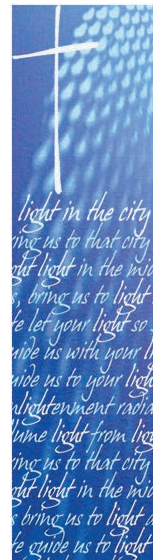 light in the city
ing us to that city
ght light in the mid
s, bring us to light
e let your light so s
uide us with your li
uide us to your light
nlightenment radia
lume light from lig
ing us to that city
ght light in the mid
s bring us to light a
e guide us to light